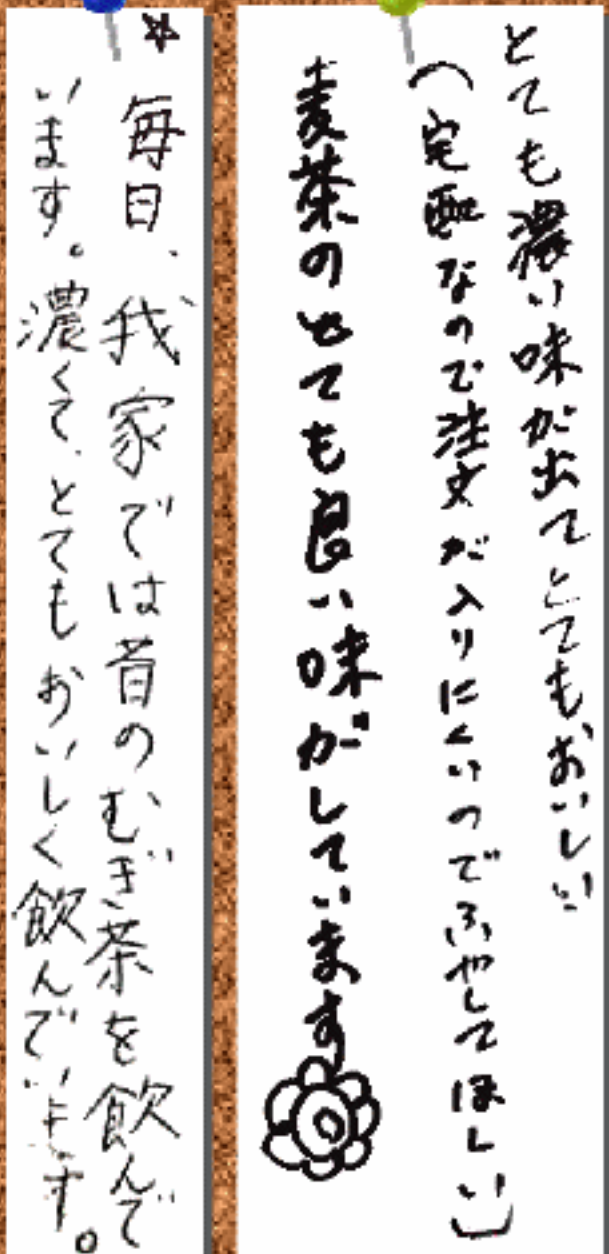 とても濃い味が出てとてもおいしい
(宅配なので注文が入りにくいのでふやしてほしい)
麦茶のとても良い味がしています
☆毎日、我家では昔のむぎ茶を飲んで
います。濃くて、とてもおいしく飲んでいます。